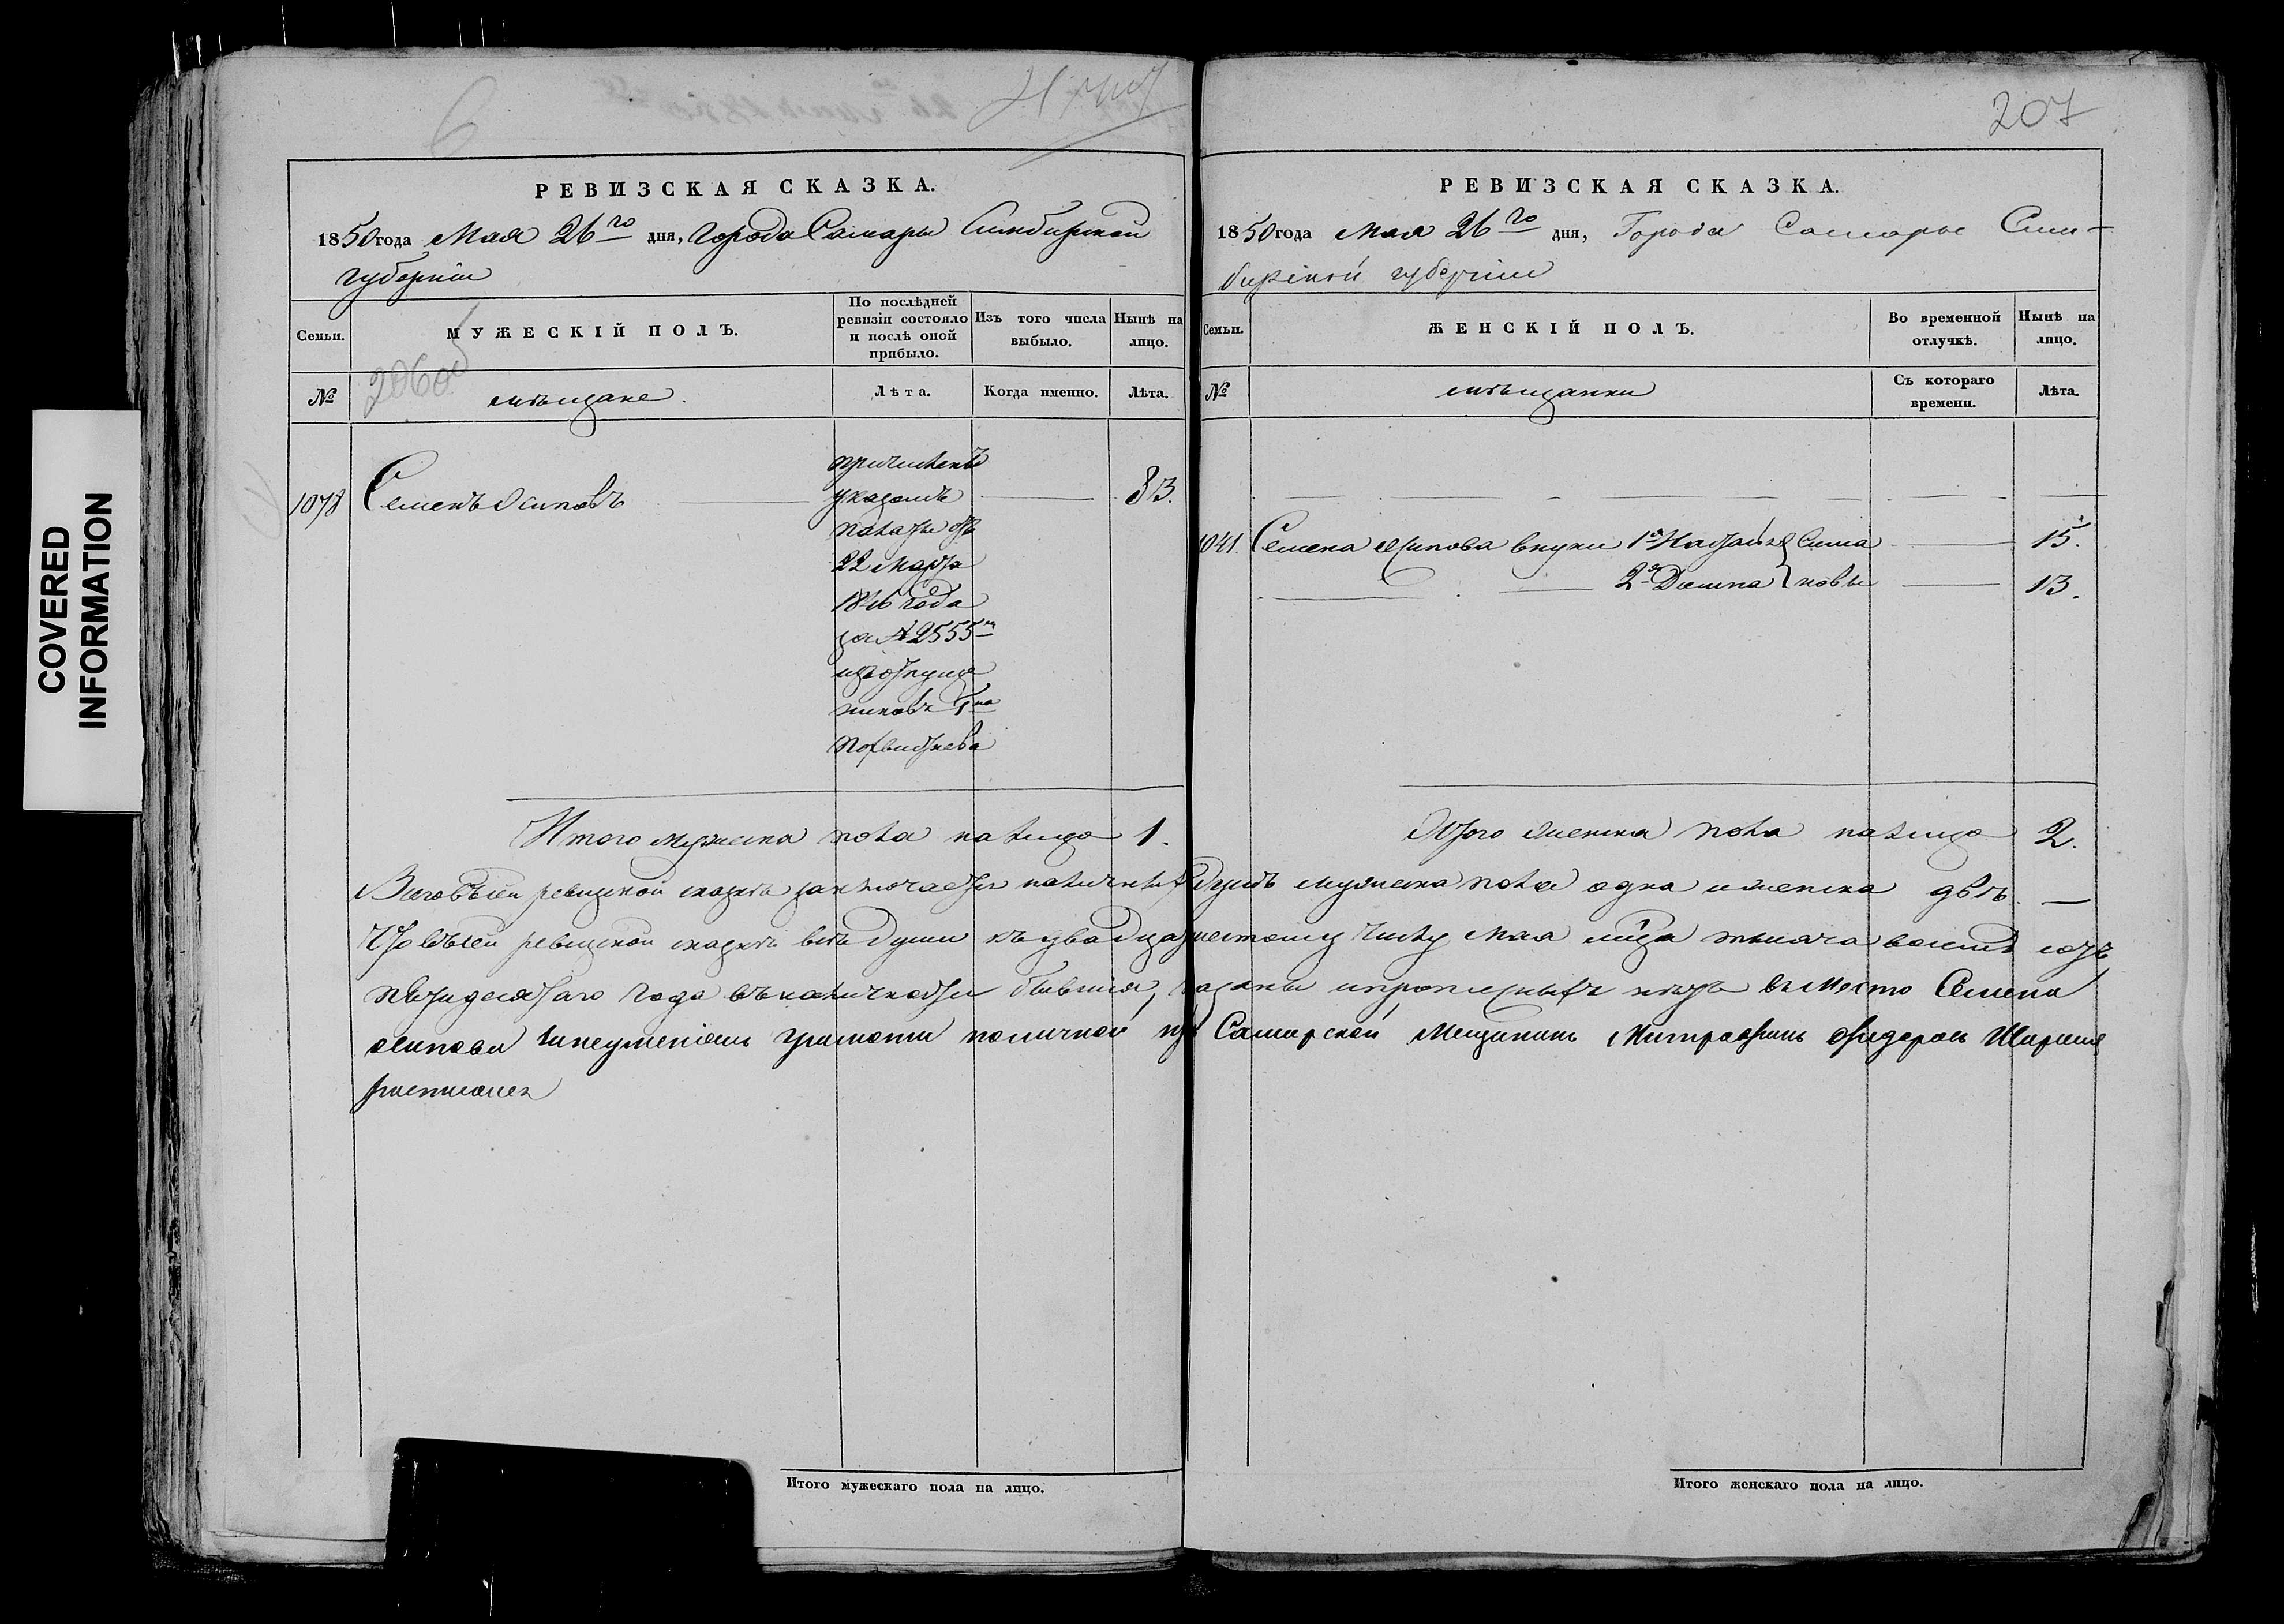 COVERED
INFORMATION
6
207
РЕВИЗСКАЯ СКАЗКА.
1850 года Мая 26го дня, Города Самары Синбирской
губернiи
Семьи. МУЖЕСКIЙ ПОЛЪ. По послѣдней ревизiи состояло и послѣ оной прибыло. Изъ того числа выбыло. Нынѣ на лицо.
№ мѣщане. Лѣта. Когда именно. Лѣта.
1078 Семенъ Осиповъ 83.
причисленъ
указомъ
палаты отъ
22 марта
1846 года
за № 2555м
изъ отпуще
никовъ Гна
Итого мужеска пола налицо 1.
РЕВИЗСКАЯ СКАЗКА.
1850 года Мая 26го дня, Города Самары Син-
бирской губернiи
Семьи. ЖЕНСКIЙ ПОЛЪ. Во временной отлучкѣ. Нынѣ на лицо.
№ мѣщанки Съ котораго времени. Лѣта.
1041. Семена Осипова внуки 1я Наталья Сима 15.
2я Домна новы 13.
Итого женска пола налицо 2.
Всего въ сей ревизской сказкѣ заключается наличныхъ душъ мужеска пола одна и женска двѣ. —
Что въ сей ревизской сказкѣ всѣ души къ двадцать шестому числу Мая мѣца тысяча восемь сотъ
пятидесятаго года въ наличности бывшiя, показаны и прописныхъ нѣтъ вместо Семена
осипова неумением грамоти поличной Самарской Мещининъ Митрофанъ
росписался
Итого мужескаго пола на лицо.
Итого женскаго пола на лицо.